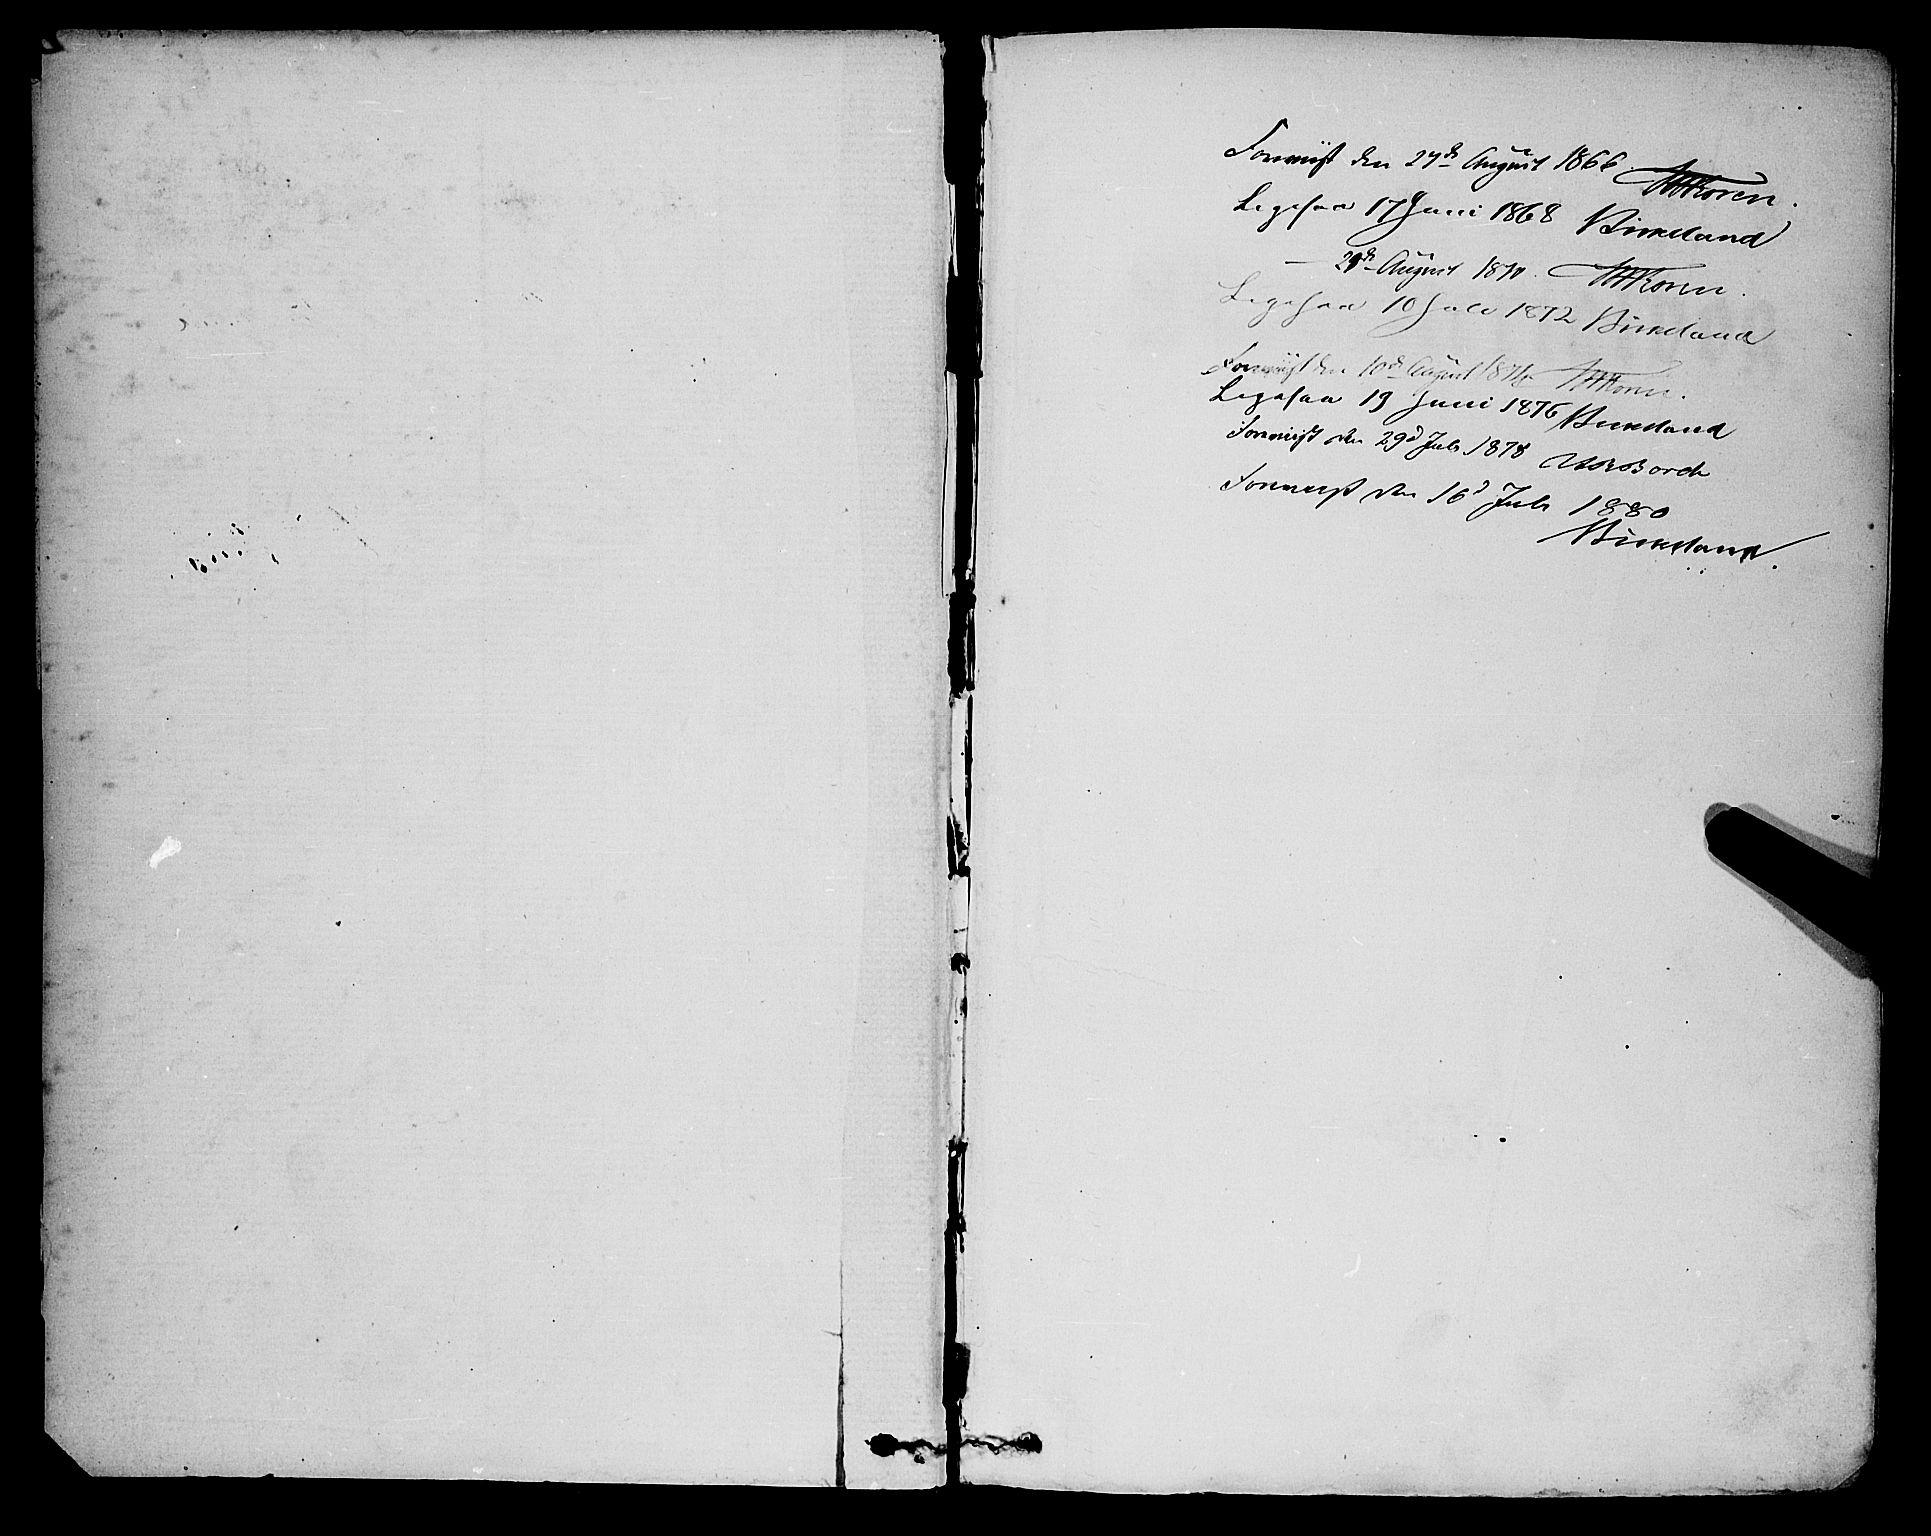 Foreviist den 27de August 1866 Koren.
Ligesaa 17 Juni 1868 Birkeland
— August 1870. Koren.
Ligesaa 10 Juli 1872 Birkeland
Foreviist den 10de August 1874 Koren.
Ligesaa 19 Juni 1876 Birkeland
Foreviist den 29d Juli 1878
Foreviist den 16d Juli 1880
Birkeland.